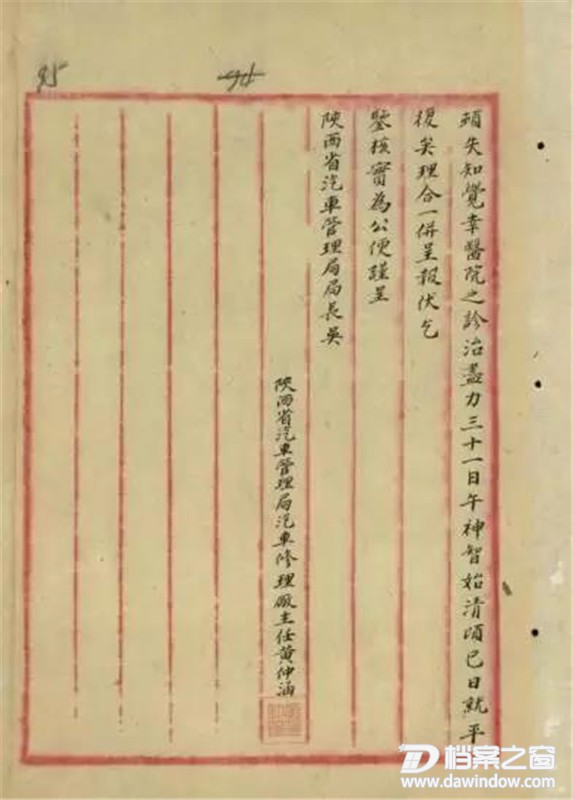 頭失知覺幸醫院之診治盡力三十一日午神智始清頃已日就平
復矣理合一併呈報伏乞
鑒核實為公便謹呈
陝西省汽車管理局局長吳
陝西省汽車管理局汽車修理廠主任黃仲涵
95
94
档案之窗
www.dawindow.com